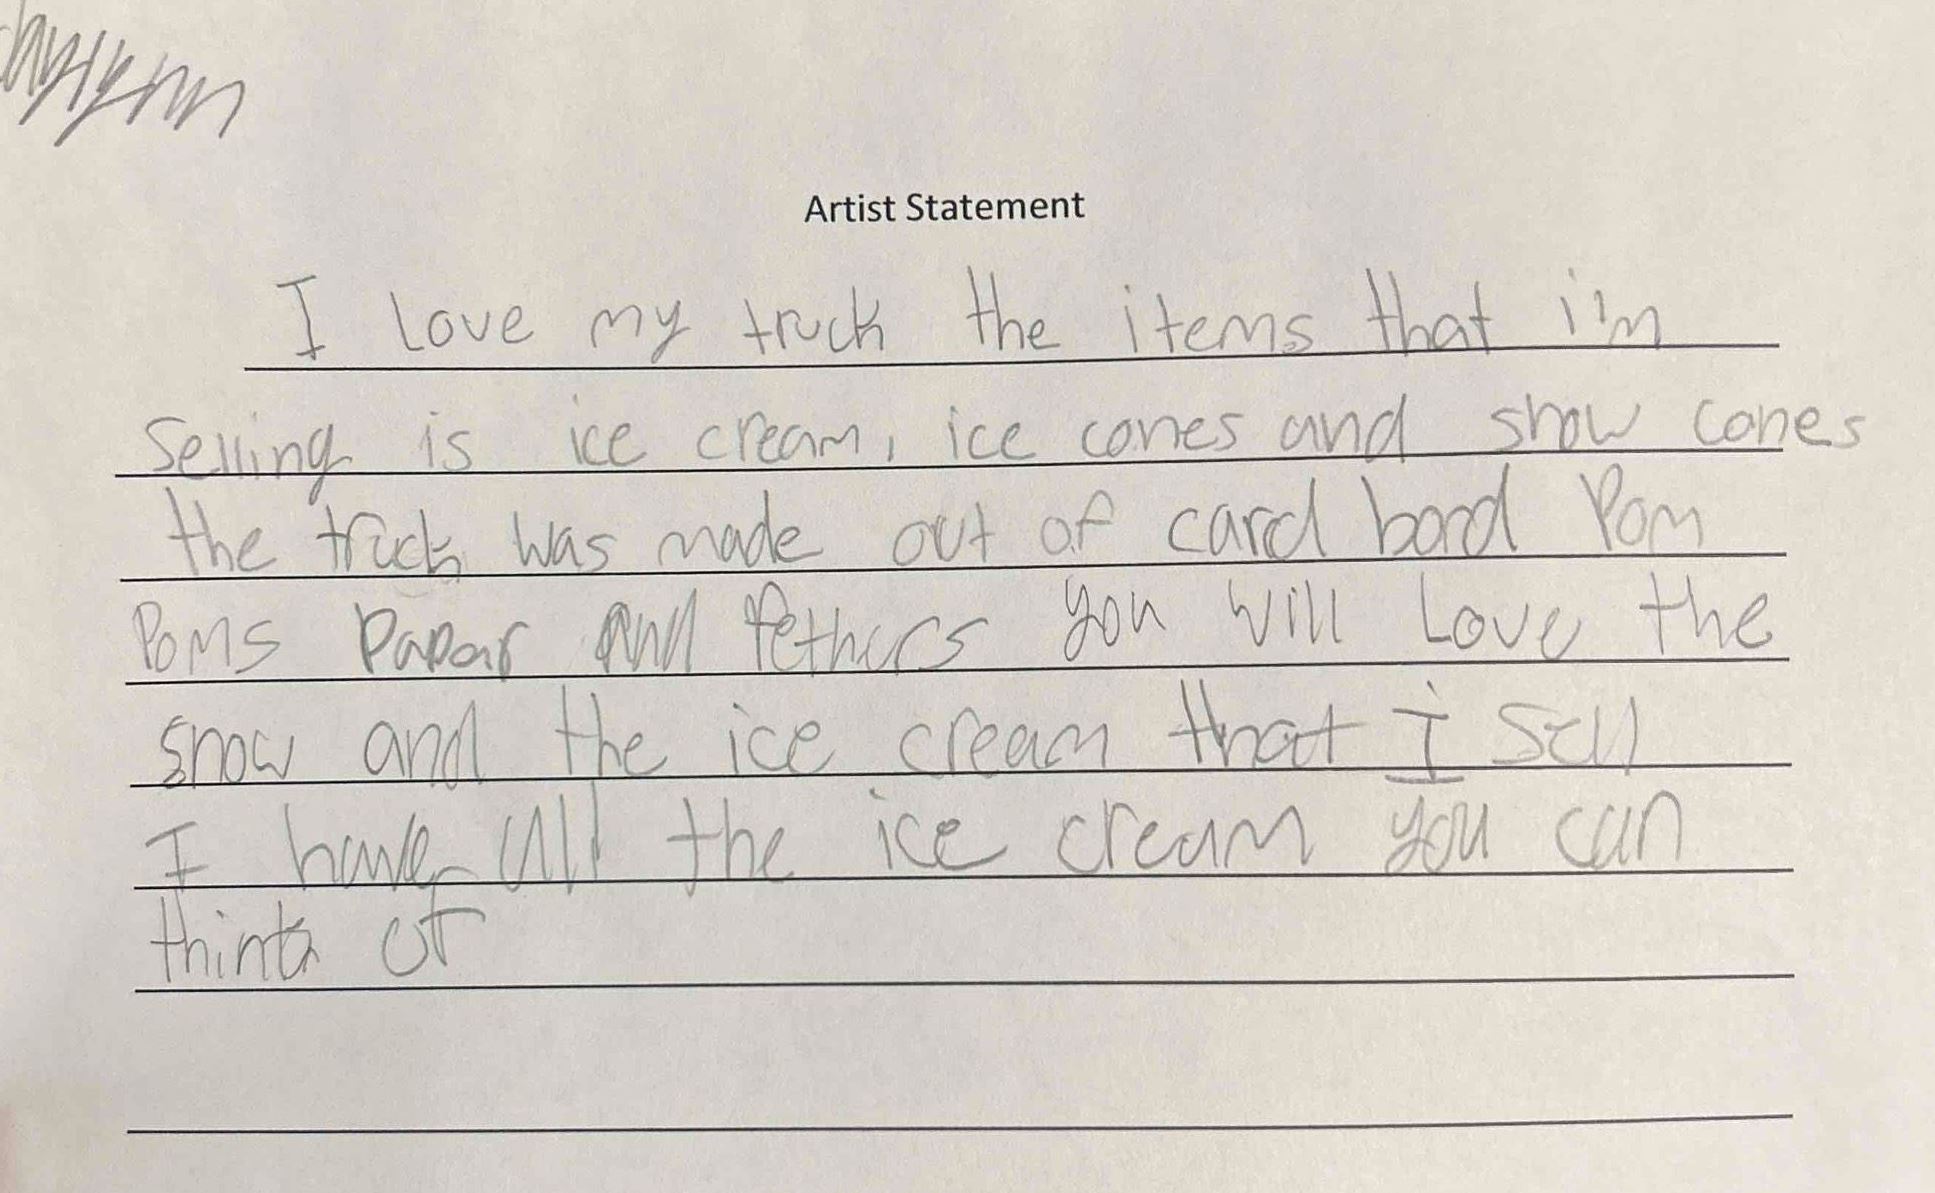 Artist Statement
I Love my truck the items that i'm
Selling is ice cream, ice cones and snow cones
the truck was made out of card bord Pom
Poms Papar and fethurs you will Love the
snow and the ice cream that I sell
I have all the ice cream you can
think of